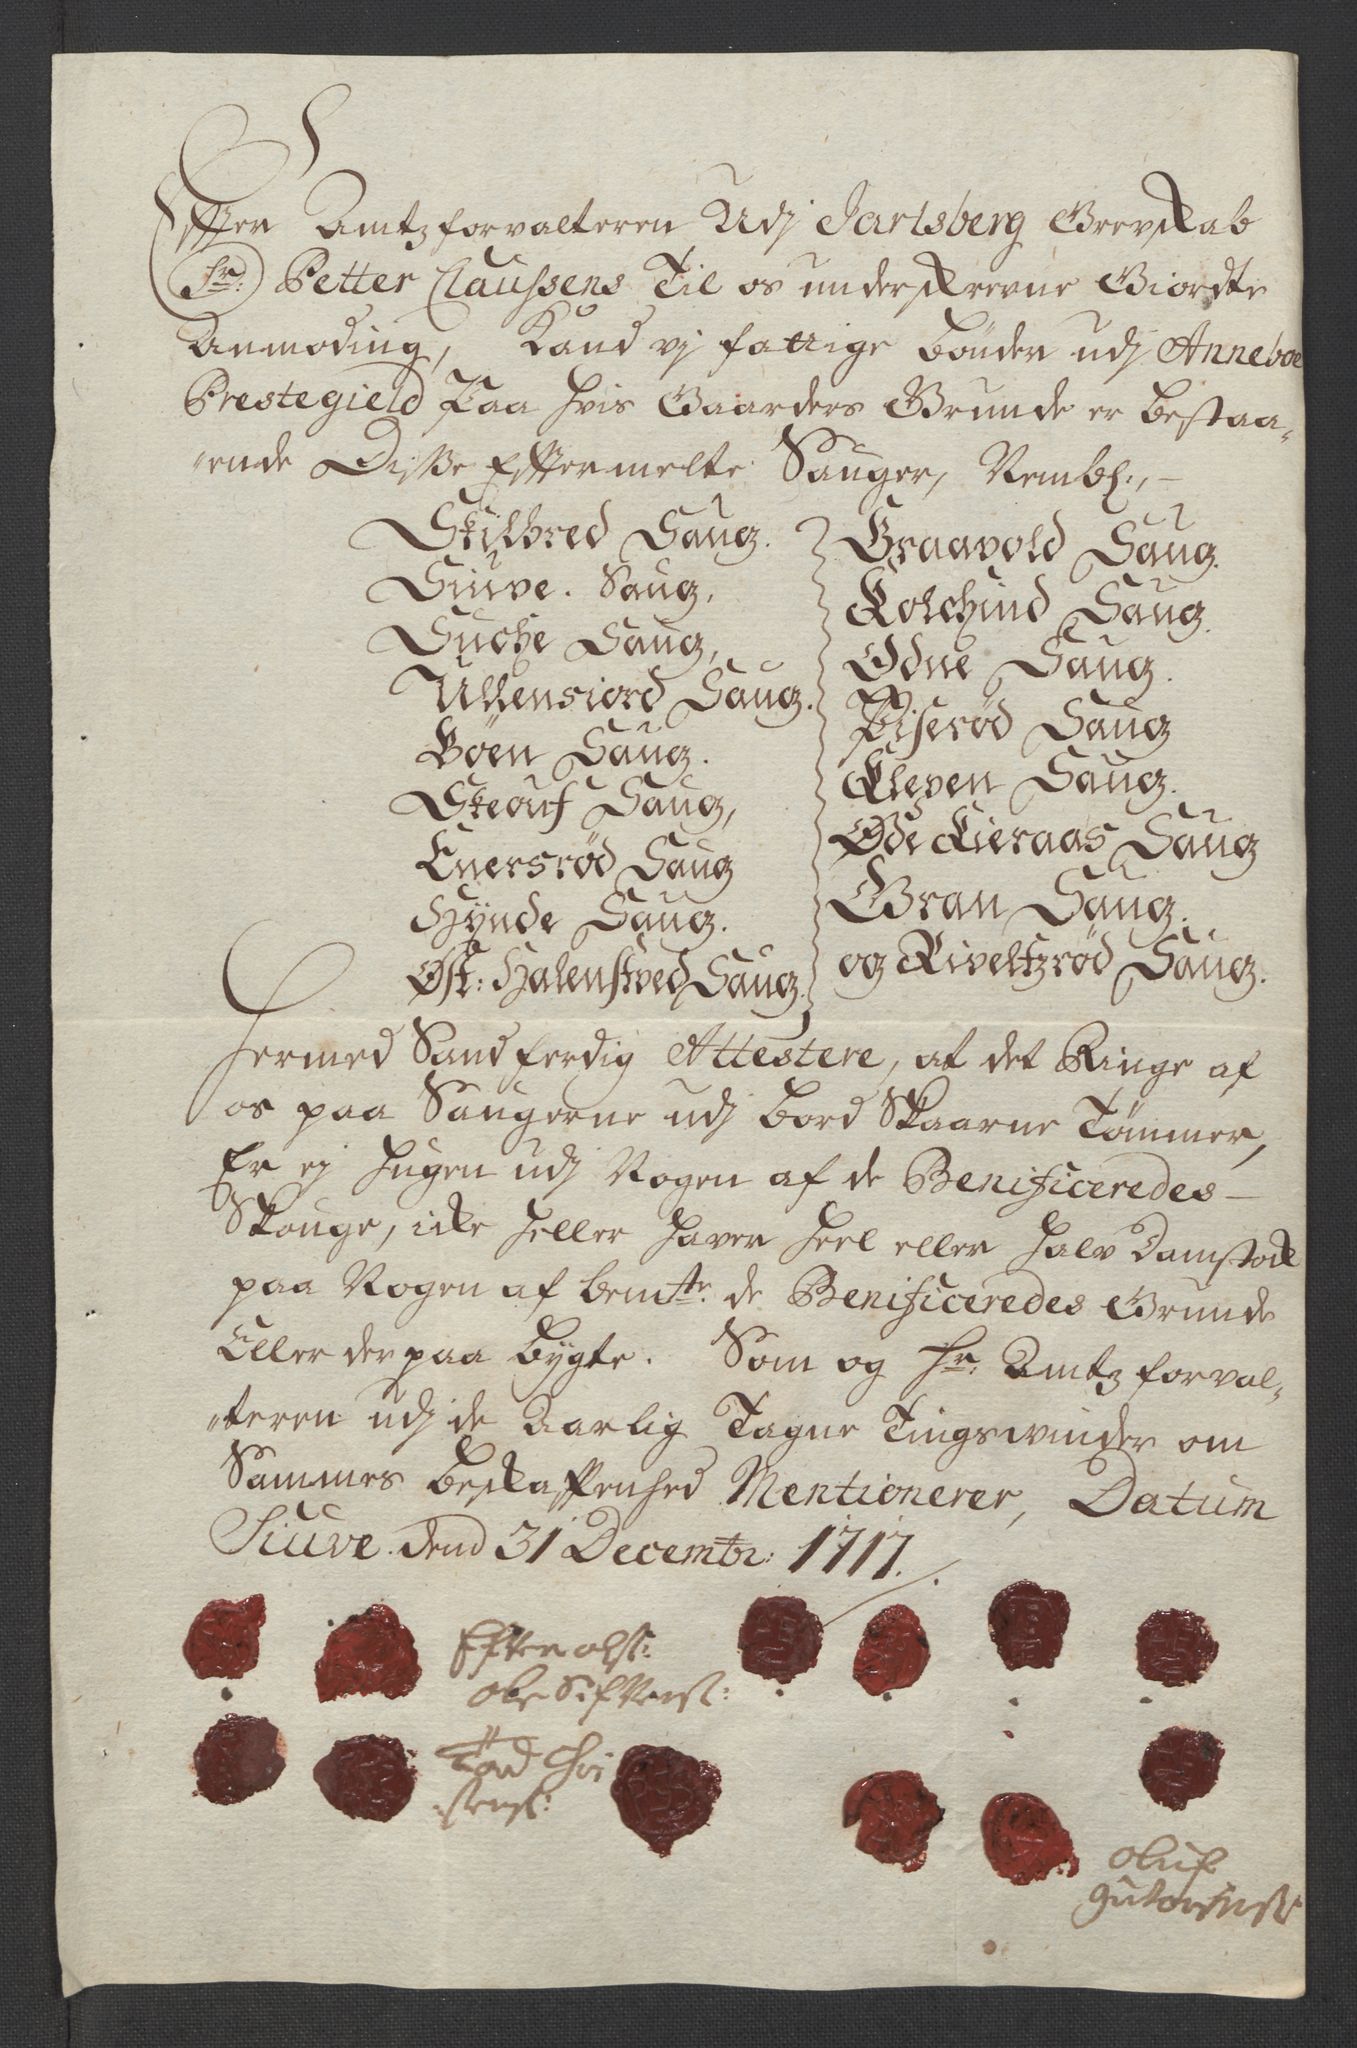 Efter Amtzforvalteren Udj Jarlsberg Grevskab
Hr: Petter Claussens Til os underskrevne Giordte
Anmoding, Kand vj fattige bönder udj Anneboe
Prestegield Paa hvis Gaarders Grunde er bestaa-
ende Disse Eftermelte Sauger, Nembl:,
Skilbred Saug.
Siuve. Saug,
Suche Saug,
Ullensiord Saug.
Böen Saug.
Skeauf Saug,
Enersröd Saug
Hynde Saug.
Øst: Halenstved Saug.
Graavold Saug.
Kolchind Saug.
Odne Saug.
Fiseröd Saug
Kleven Saug.
Øde Kieraas Saug
Gran Saug.
og Riveltzröd Saug.
Hermed Sandferdig Attestere, at det Ringe af
os paa Saugerne udj bord Skaarne Tömmer,
Er ej hugen udj Nogen af de Benificeredes
Skouge, icke heller haver heel eller halv Damstock
paa Nogen af bemte: de Benificeredes Grunde
Eller derpaa bygte. Som og Hr: Amtzforval-
teren udj de Aarlig Tagne Tingswinder om
Sammes beskaffenhed Mentionerer, Datum
Siuve dend 31 Decembr: 1717.
Efven olss:
ole Sifversß:
Tord Chri
stensß:
oluf
gutormsß